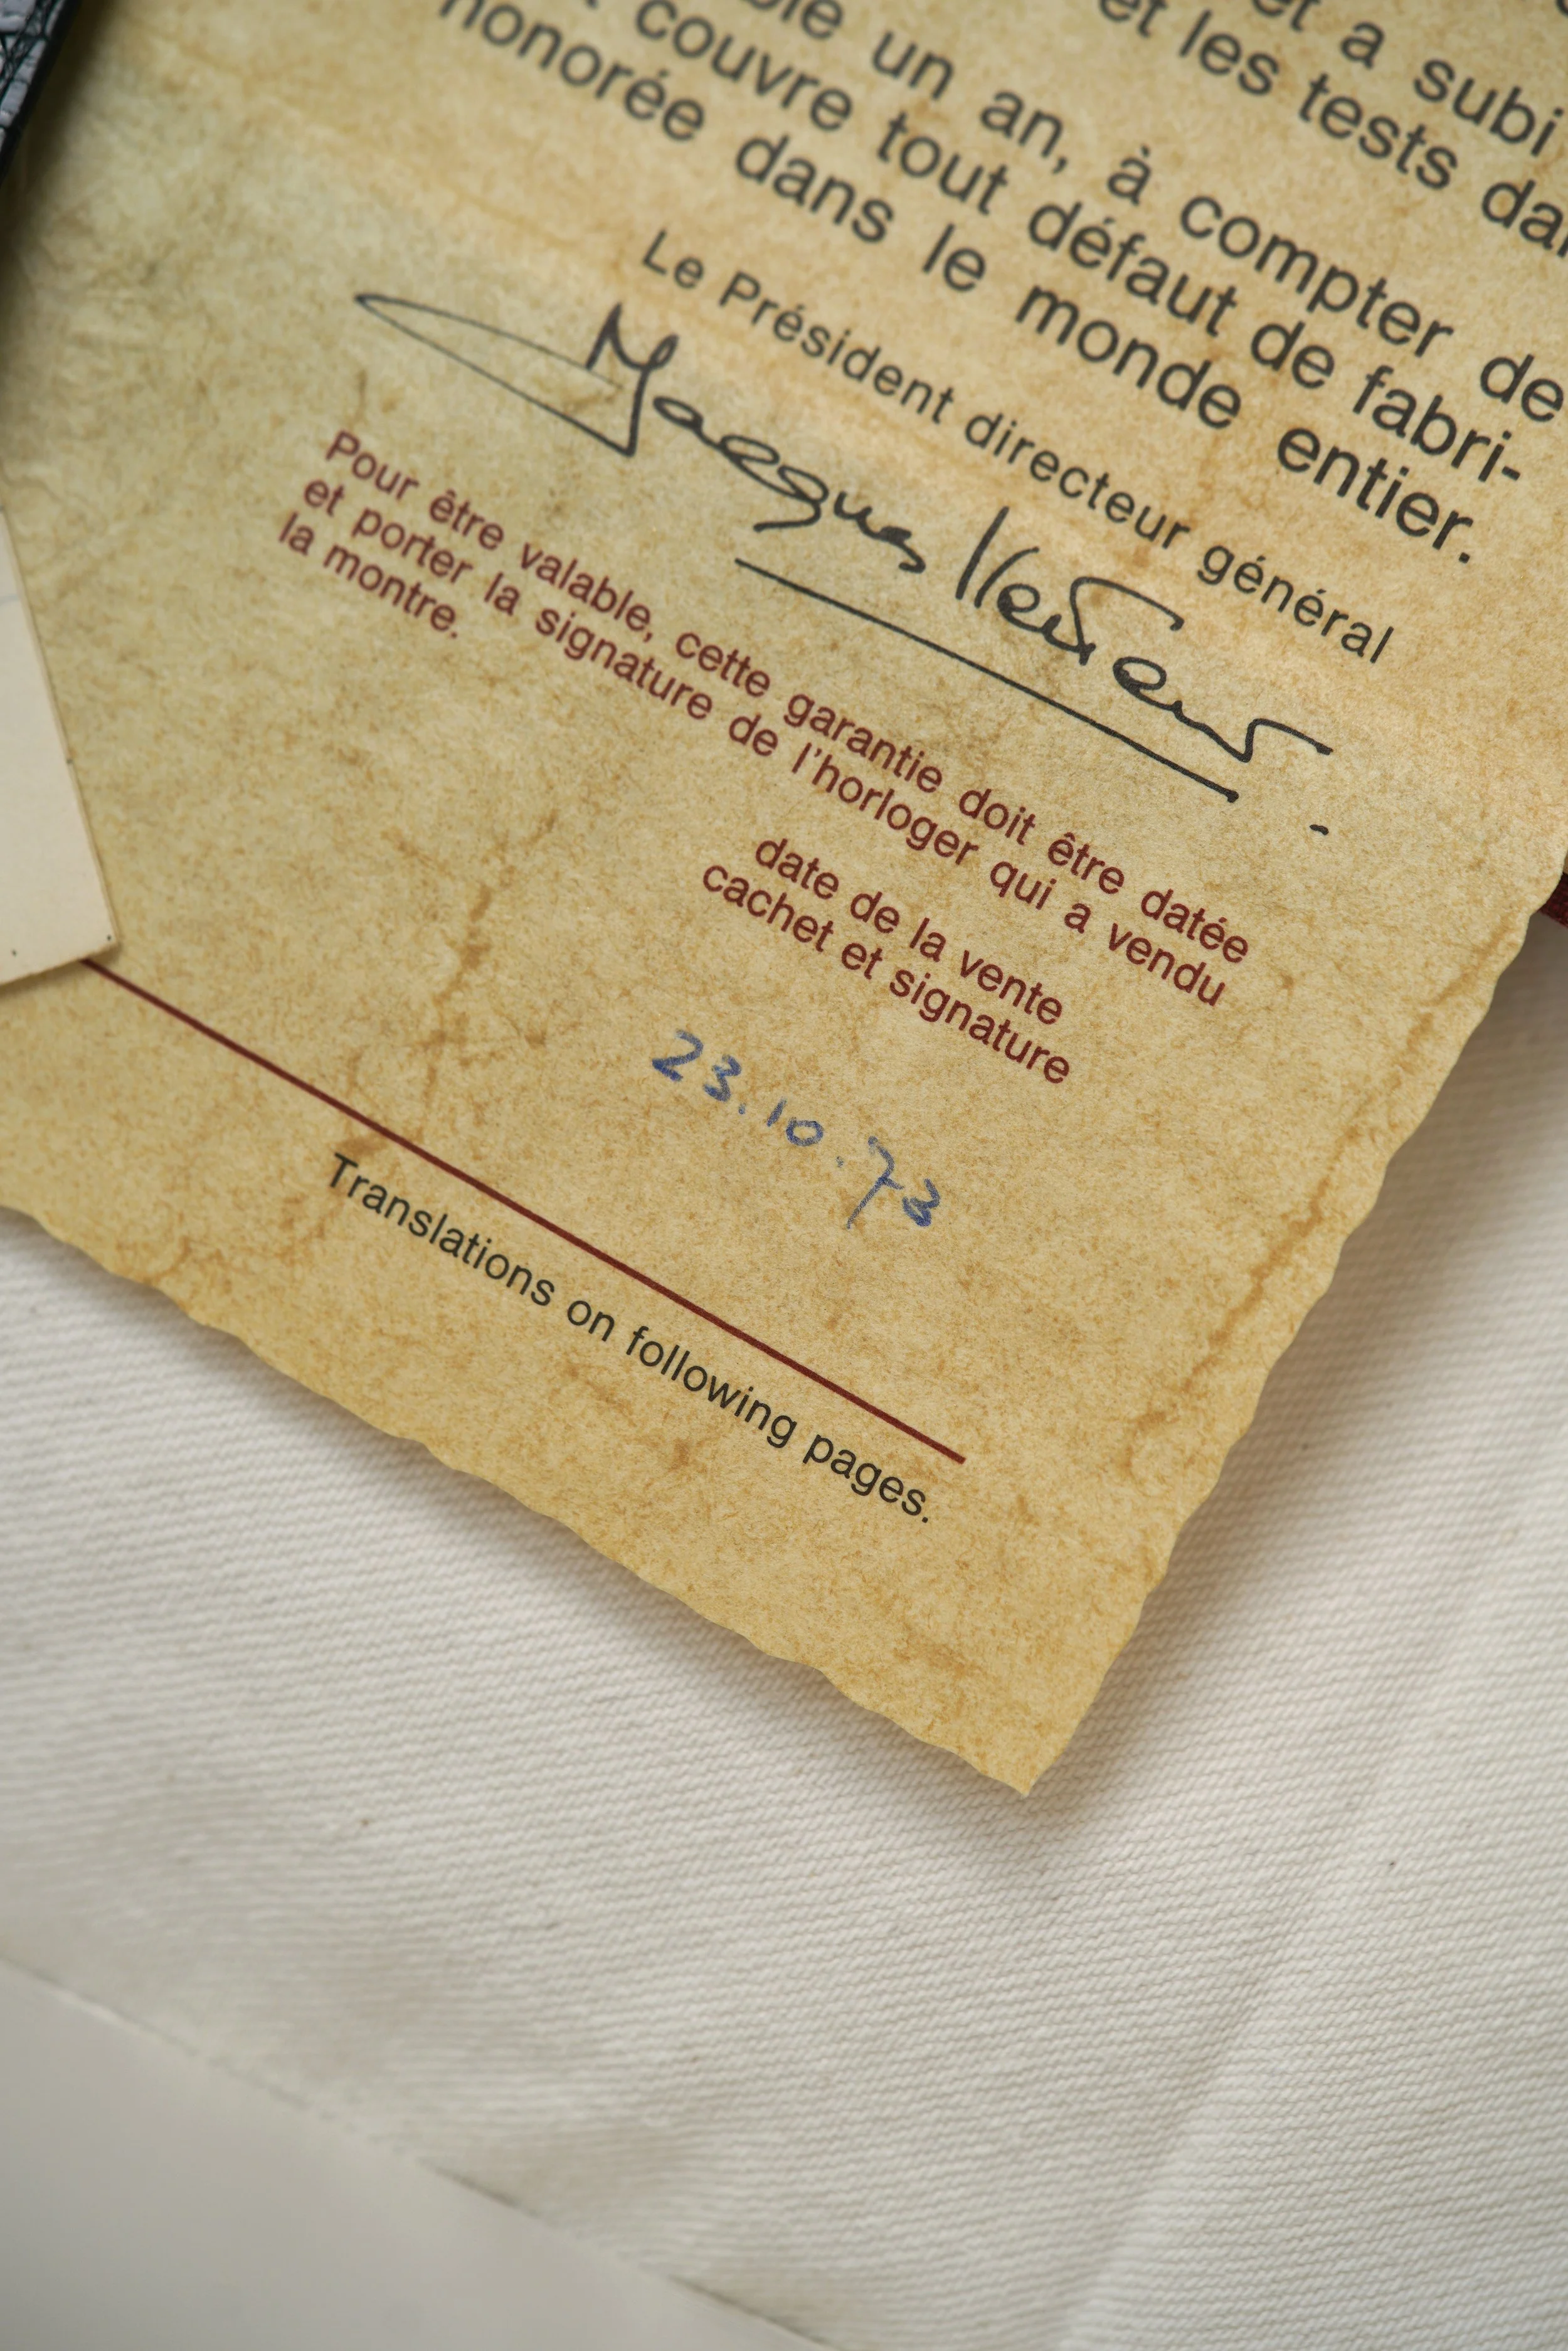 et a subi
et les tests
un an, à compter de
couvre tout défaut de fabri-
honorée dans le monde entier.
Le Président directeur général
Jacques
Pour être valable, cette garantie doit être datée
et porter la signature de l'horloger qui a vendu
la montre.
date de la vente
cachet et signature
23.10.73
Translations on following pages.